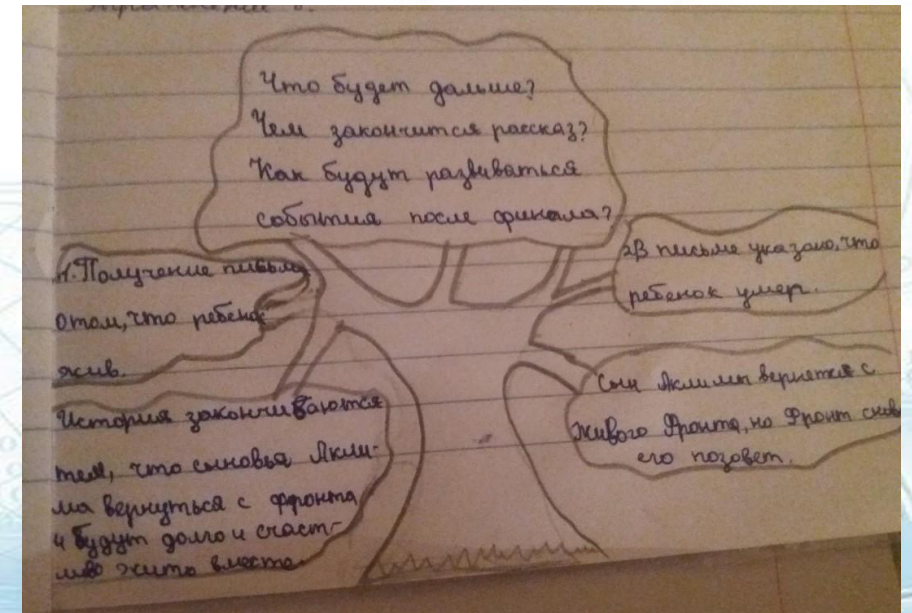 Что будет дальше?
Чем закончится рассказ?
Как будут развиваться
события после финала?
1. Получение письма
о том, что ребенок
жив.
2В письме указано, что
ребенок умер.
История заканчиваются
тем, что сыновья Акли-
ма вернуться с фронта
и будут долго и счаст-
ливо жить вместе.
Сын Аклимы вернется с
живого Фронта, но Фронт снова
его позовет.